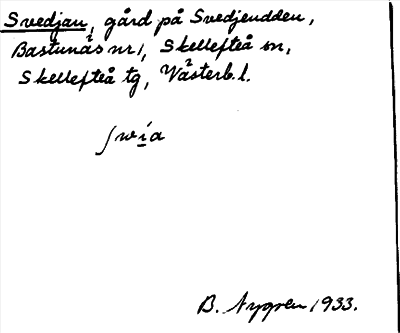 Svedjan, gård på Svedjeudden,
Bastunäs nr 1, Skellefteå sn,
Skellefteå tg, Västerb. l.
B. Nygren 1933.